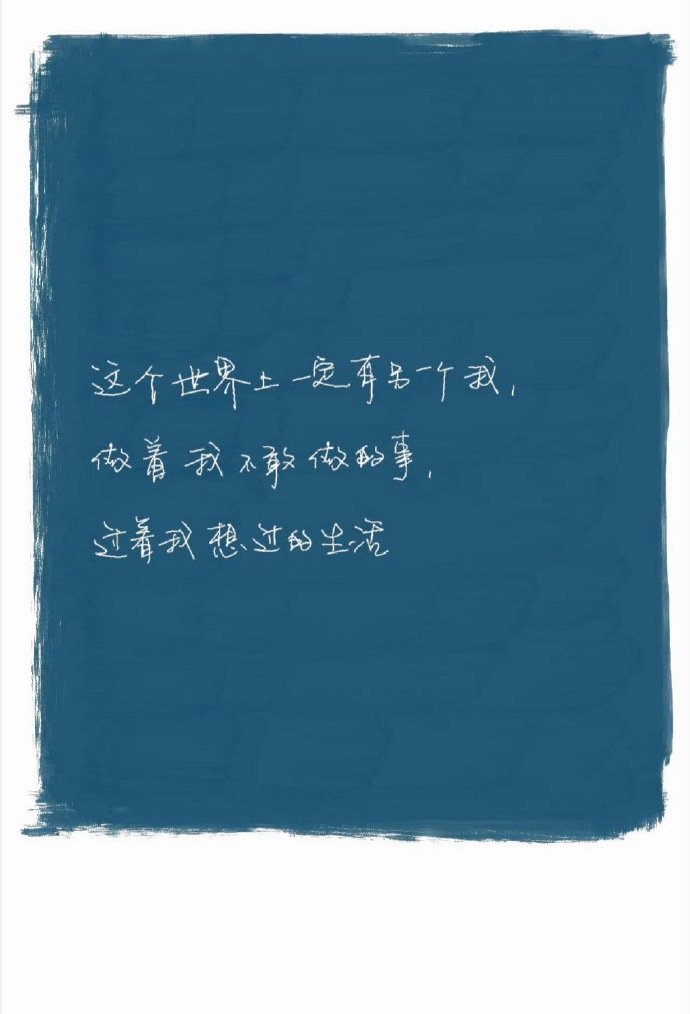 这个世界上一定有另一个我,
做着我不敢做的事,
过着我想过的生活